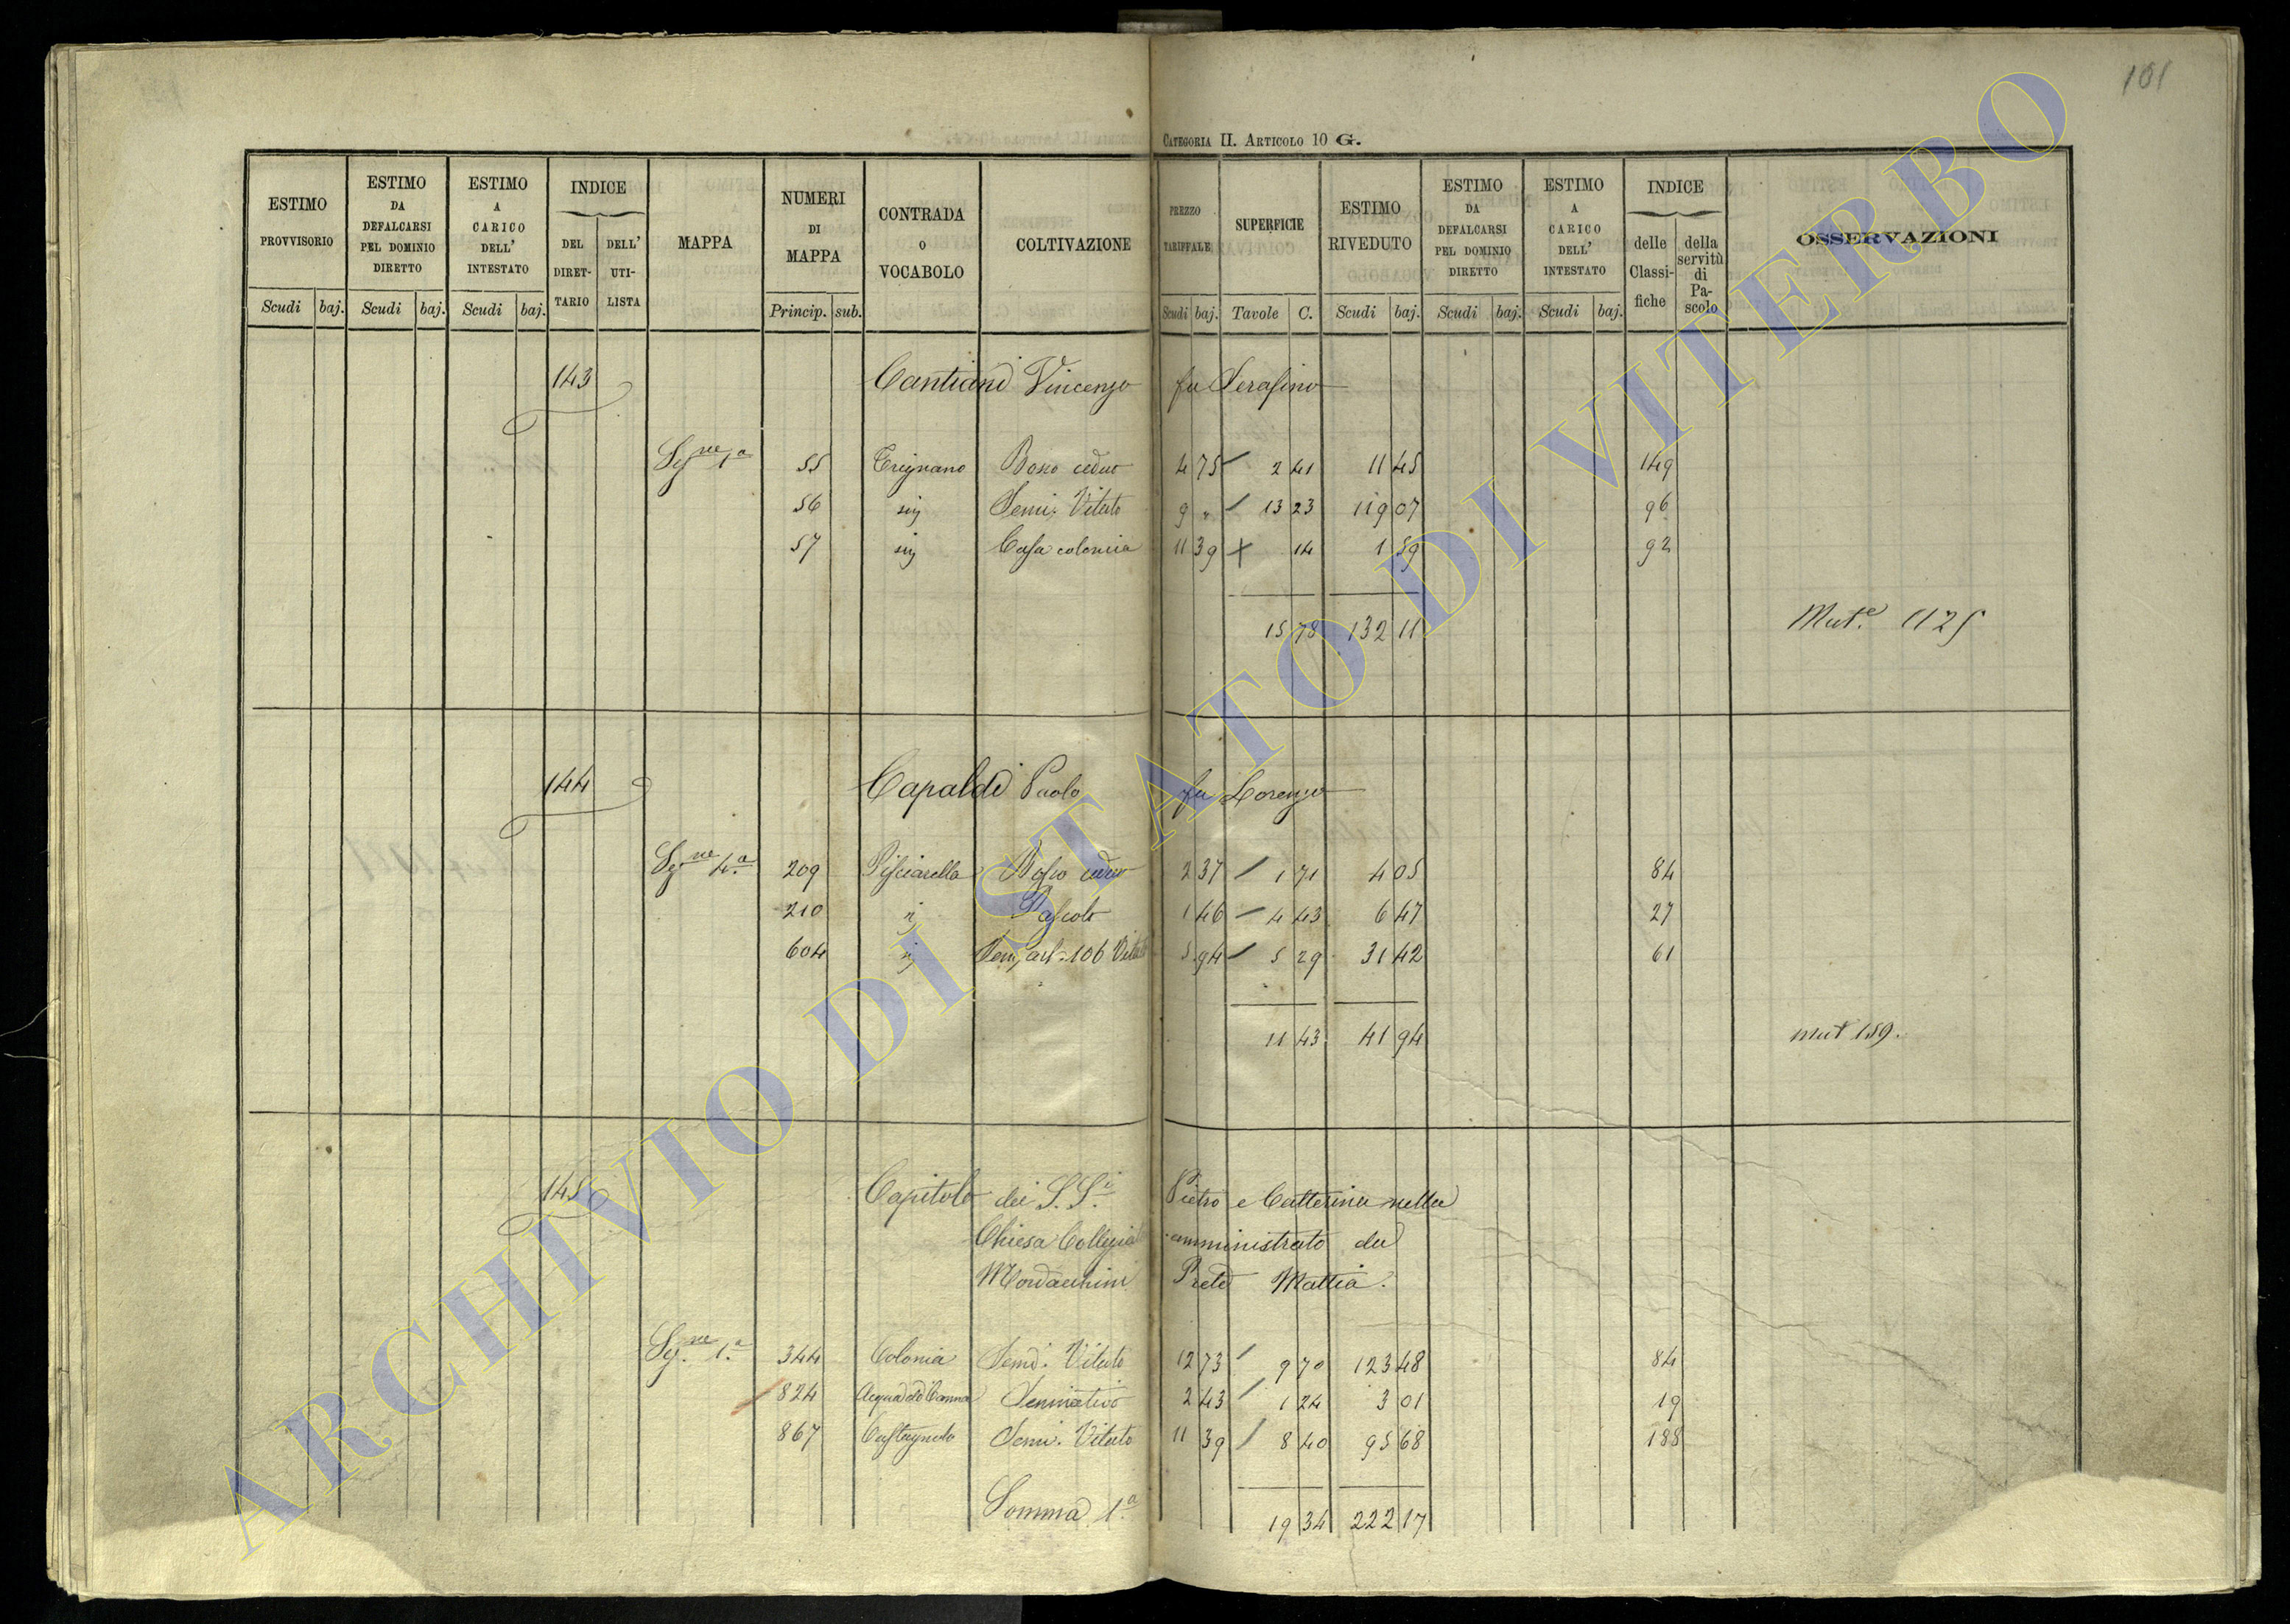 101
CATEGORIA II. ARTICOLO 10 G.
ESTIMO PROVVISORIO | ESTIMO DA DEFALCARSI PEL DOMINIO DIRETTO | ESTIMO A CARICO DELL' INTESTATO | INDICE | MAPPA | NUMERI DI MAPPA | CONTRADA O VOCABOLO | COLTIVAZIONE | PREZZO TARIFFALE | SUPERFICIE | ESTIMO RIVEDUTO | ESTIMO DA DEFALCARSI PEL DOMINIO DIRETTO | ESTIMO A CARICO DELL' INTESTATO | INDICE | OSSERVAZIONI
DEL DIRET-TARIO | DELL' UTI-LISTA | delle Classi-fiche | della servitù di Pa-scolo
Scudi | baj. | Scudi | baj. | Scudi | baj. | Princip. | sub. | Scudi | baj. | Tavole | C. | Scudi | baj. | Scudi | baj. | Scudi | baj.
143 Cantiani Vincenzo fu Serafino
Sez.ne 1a 55 Trignano Bosco ceduo 4 75 2 41 11 45 149
56 Semi. Vitato 9 " 13 23 119 07 96
57 Casa colonica 11 39 14 1 59 92
15 78 132 11
Mut.e 1125
144 Capaldi Paolo fu Lorenzo
Sez.ne 4.a 209 Pisciarella Bosco ceduo 2 37 1 71 4 05 84
210 Pascolo 1 46 4 43 6 47 27
604 Sem. 106 Vitato 5 94 5 29 31 42 61
11 43 41 94
Mut 159.
145 Capitolo dei S.S.i Pietro e Catterina nella
Chiesa Collegial amministrato da
Mordacchini Prete Mattia.
Sez.ne 1.a 344 Colonia Semi. Vitato 12 73 9 70 123 48 84
824 Acqua della Canna Seminativo 2 43 1 24 3 01 19
867 Castagnola Semi. Vitato 11 39 8 40 95 68 188
Somma 1.a 19 34 222 17
ARCHIVIO DI STATO DI VITERBO